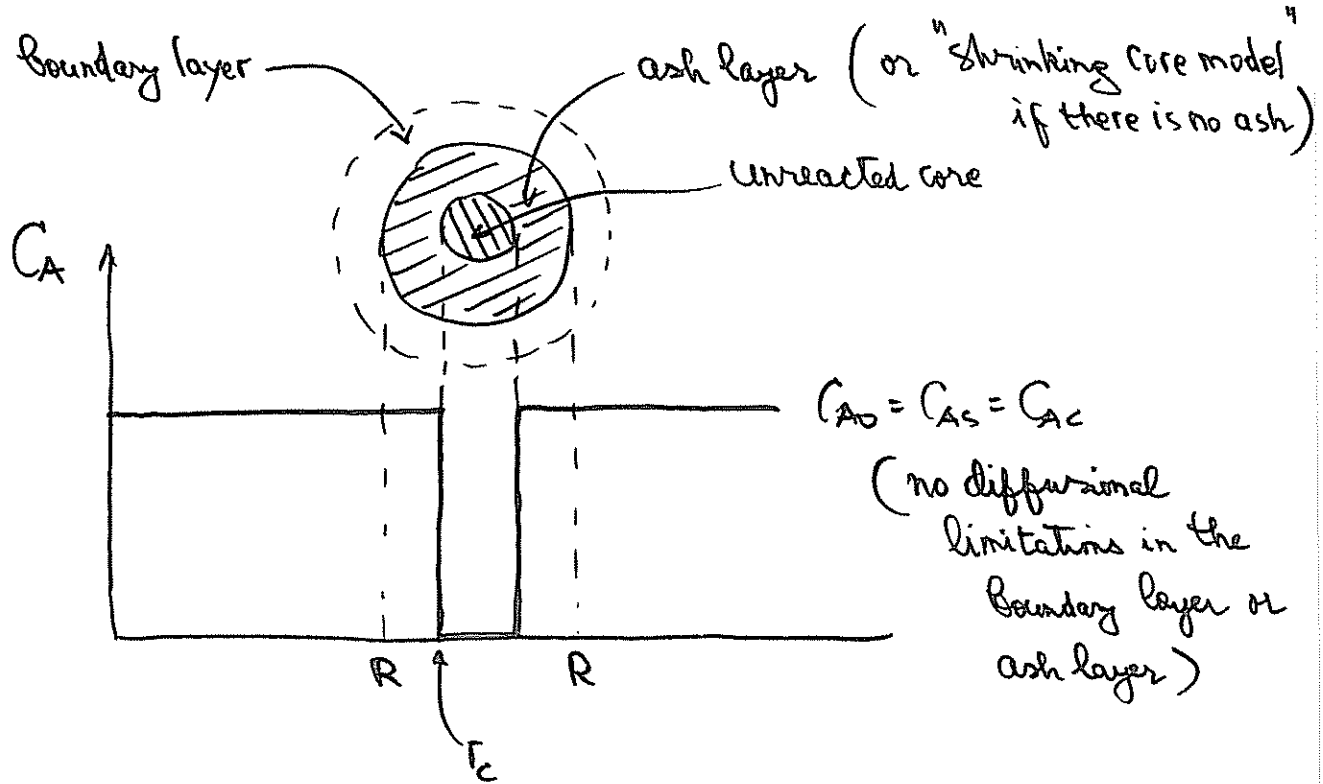 boundary layer
ash layer (or "shrinking core model"
if there is no ash)
unreacted core
C_A
C_A0 = C_As = C_Ac
(no diffusional
limitations in the
boundary layer or
ash layer)
R
R
r_c